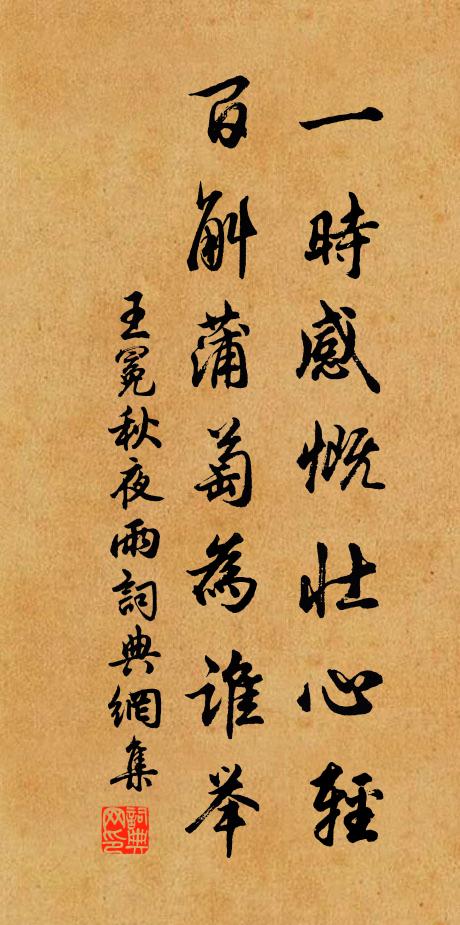 一時感慨壯心輕
百斛蒲萄為誰举
王冕秋夜雨詞典網集
詞典网印